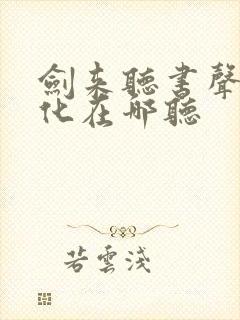 劍来聽書聲
化在哪聽
若雲淺